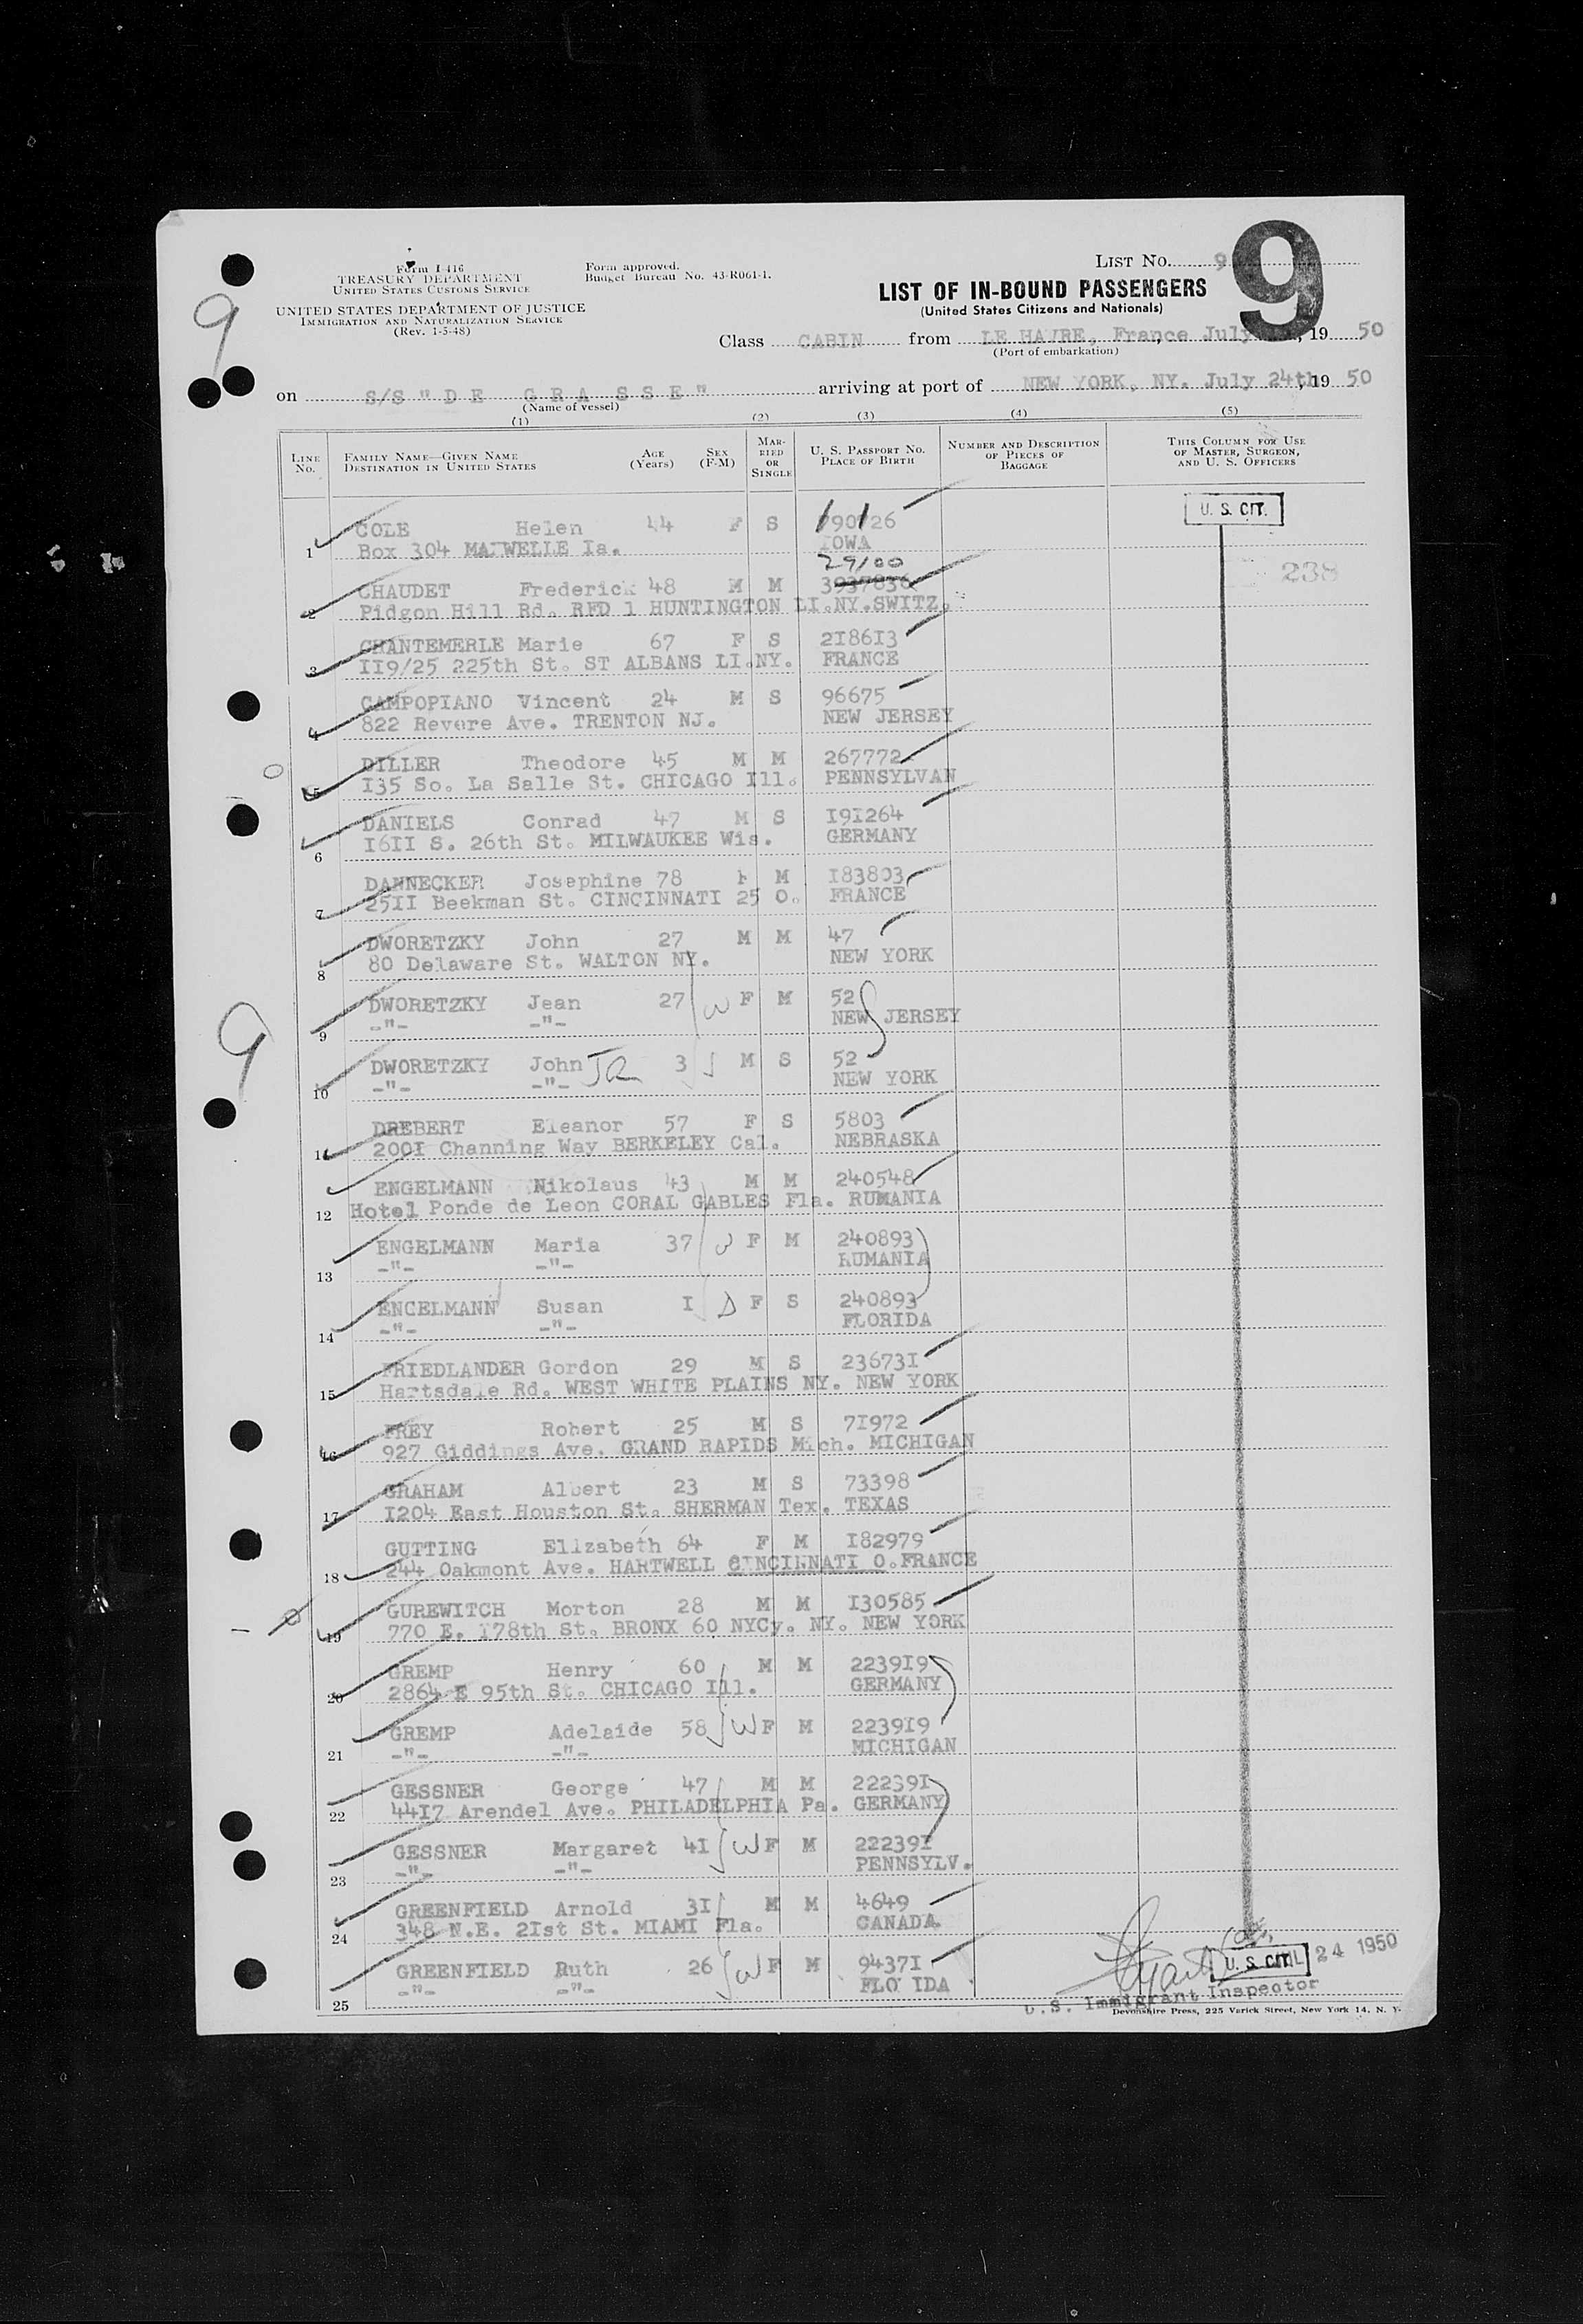 9
Form I-416
TREASURY DEPARTMENT
UNITED STATES CUSTOMS SERVICE
UNITED STATES DEPARTMENT OF JUSTICE
IMMIGRATION AND NATURALIZATION SERVICE
(Rev. 1-5-48)
Form approved.
Budget Bureau No. 43-R061-1.
LIST No. 9
9
LIST OF IN-BOUND PASSENGERS
(United States Citizens and Nationals)
Class CABIN from LE HAVRE, France July , 19 50
(Port of embarkation)
on S/S "DE GRASSE" arriving at port of NEW YORK, NY. July 24th, 19 50
(Name of vessel)
(1) (2) (3) (4) (5)
LINE No. FAMILY NAME—GIVEN NAME DESTINATION IN UNITED STATES AGE (Years) SEX (F-M) MARRIED OR SINGLE U. S. PASSPORT No. PLACE OF BIRTH NUMBER AND DESCRIPTION OF PIECES OF BAGGAGE THIS COLUMN FOR USE OF MASTER, SURGEON, AND U. S. OFFICERS
U. S. CIT.
COLE Helen 44 F S 90126
1 Box 304 MAXWELLE Ia. IOWA
29100
CHAUDET Frederick 48 M M 3937836
238
2 Pidgon Hill Rd. RFD 1 HUNTINGTON LI.NY.SWITZ.
CHANTEMERLE Marie 67 F S 2I86I3
3 II9/25 225th St. ST ALBANS LI.NY. FRANCE
CAMPOPIANO Vincent 24 M S 96675
4 822 Revere Ave. TRENTON NJ. NEW JERSEY
DILLER Theodore 45 M M 267772
5 I35 So. La Salle St. CHICAGO Ill. PENNSYLVAN
DANIELS Conrad 47 M S I9I264
6 I6II S. 26th St. MILWAUKEE Wis. GERMANY
DANNECKER Josephine 78 F M I83803
7 25II Beekman St. CINCINNATI 25 O. FRANCE
DWORETZKY John 27 M M 47
8 80 Delaware St. WALTON NY. NEW YORK
DWORETZKY Jean 27 W F M 52
9 -"- -"- NEW JERSEY
DWORETZKY John JR 3 S M S 52
10 -"- -"- NEW YORK
DREBERT Eleanor 57 F S 5803
11 200I Channing Way BERKELEY Cal. NEBRASKA
ENGELMANN Nikolaus 43 M M 240548
12 Hotel Ponde de Leon CORAL GABLES Fla. RUMANIA
ENGELMANN Maria 37 W F M 240893
13 -"- -"- RUMANIA
ENGELMANN Susan I D F S 240893
14 -"- -"- FLORIDA
FRIEDLANDER Gordon 29 M S 23673I
15 Hartsdale Rd. WEST WHITE PLAINS NY. NEW YORK
FREY Robert 25 M S 7I972
16 927 Giddings Ave. GRAND RAPIDS Mich. MICHIGAN
GRAHAM Albert 23 M S 73398
17 I204 East Houston St. SHERMAN Tex. TEXAS
GUTTING Elizabeth 64 F M I82979
18 244 Oakmont Ave. HARTWELL CINCINNATI O.FRANCE
GUREWITCH Morton 28 M M I30585
19 770 E. I78th St. BRONX 60 NYCy. NY. NEW YORK
GREMP Henry 60 M M 2239I9
20 2864 E 95th St. CHICAGO Ill. GERMANY
GREMP Adelaide 58 W F M 2239I9
21 -"- -"- MICHIGAN
GESSNER George 47 M M 22239I
22 44I7 Arendel Ave. PHILADELPHIA Pa. GERMANY
GESSNER Margaret 4I W F M 22239I
23 -"- -"- PENNSYLV.
GREENFIELD Arnold 3I M M 4649
24 348 N.E. 2Ist St. MIAMI Fla. CANADA
GREENFIELD Ruth 26 W F M 9437I
25 -"- -"- FLO IDA
9
U. S. CIT. 24 1950
U.S. Immigrant Inspector
Devonshire Press, 225 Varick Street, New York 14, N. Y.